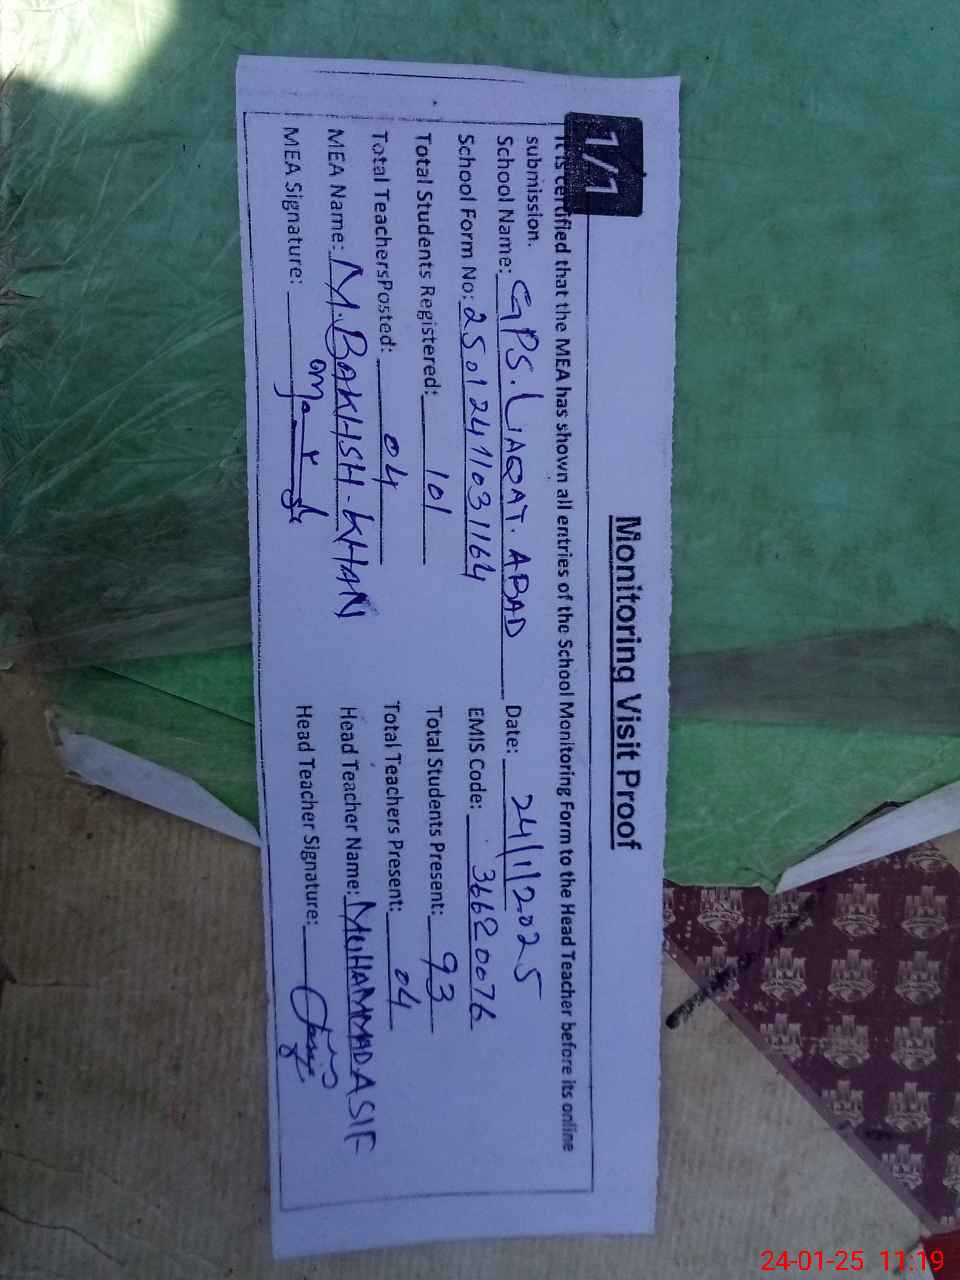 Monitoring Visit Proof
1/1
It is certified that the MEA has shown all entries of the School Monitoring Form to the Head Teacher before its online
submission.
School Name: GPS. LAQAT. ABAD Date: 24/1/2025
School Form No: 2501241031164 EMIS Code: 36620076
Total Students Registered: 101 Total Students Present: 93
Total TeachersPosted: 04 Total Teachers Present: 04
MEA Name: M. BAKHSH-KHAN Head Teacher Name: MUHAMMAD ASIF
MEA Signature: Head Teacher Signature:
24-01-25 11:19